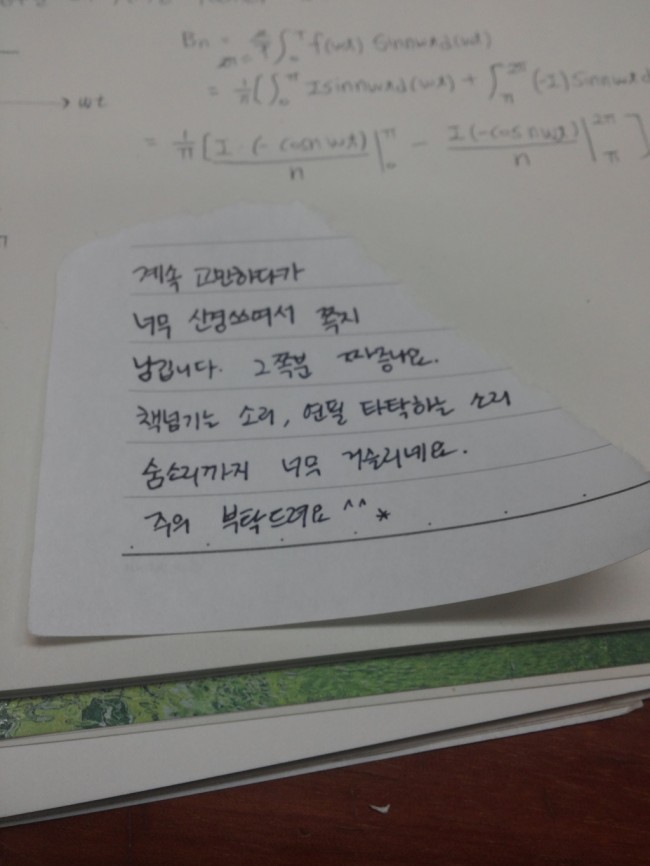 Bn = f(wt) sinnwtd(wt)
= 1/π ( ∫₀^π Isinnwtd(wt) + ∫π^2π (-I) sinnwtd
→ wt
= 1/π [ I·(-cosnwt)/n |₀^π - I(-cosnwt)/n |π^2π ]
계속 고민하다가
너무 신경쓰여서 쪽지
남깁니다. 그쪽분 짜증나요.
책넘기는 소리, 연필 타탁하는 소리
숨소리까지 너무 거슬리네요.
주의 부탁드려요 ^^*